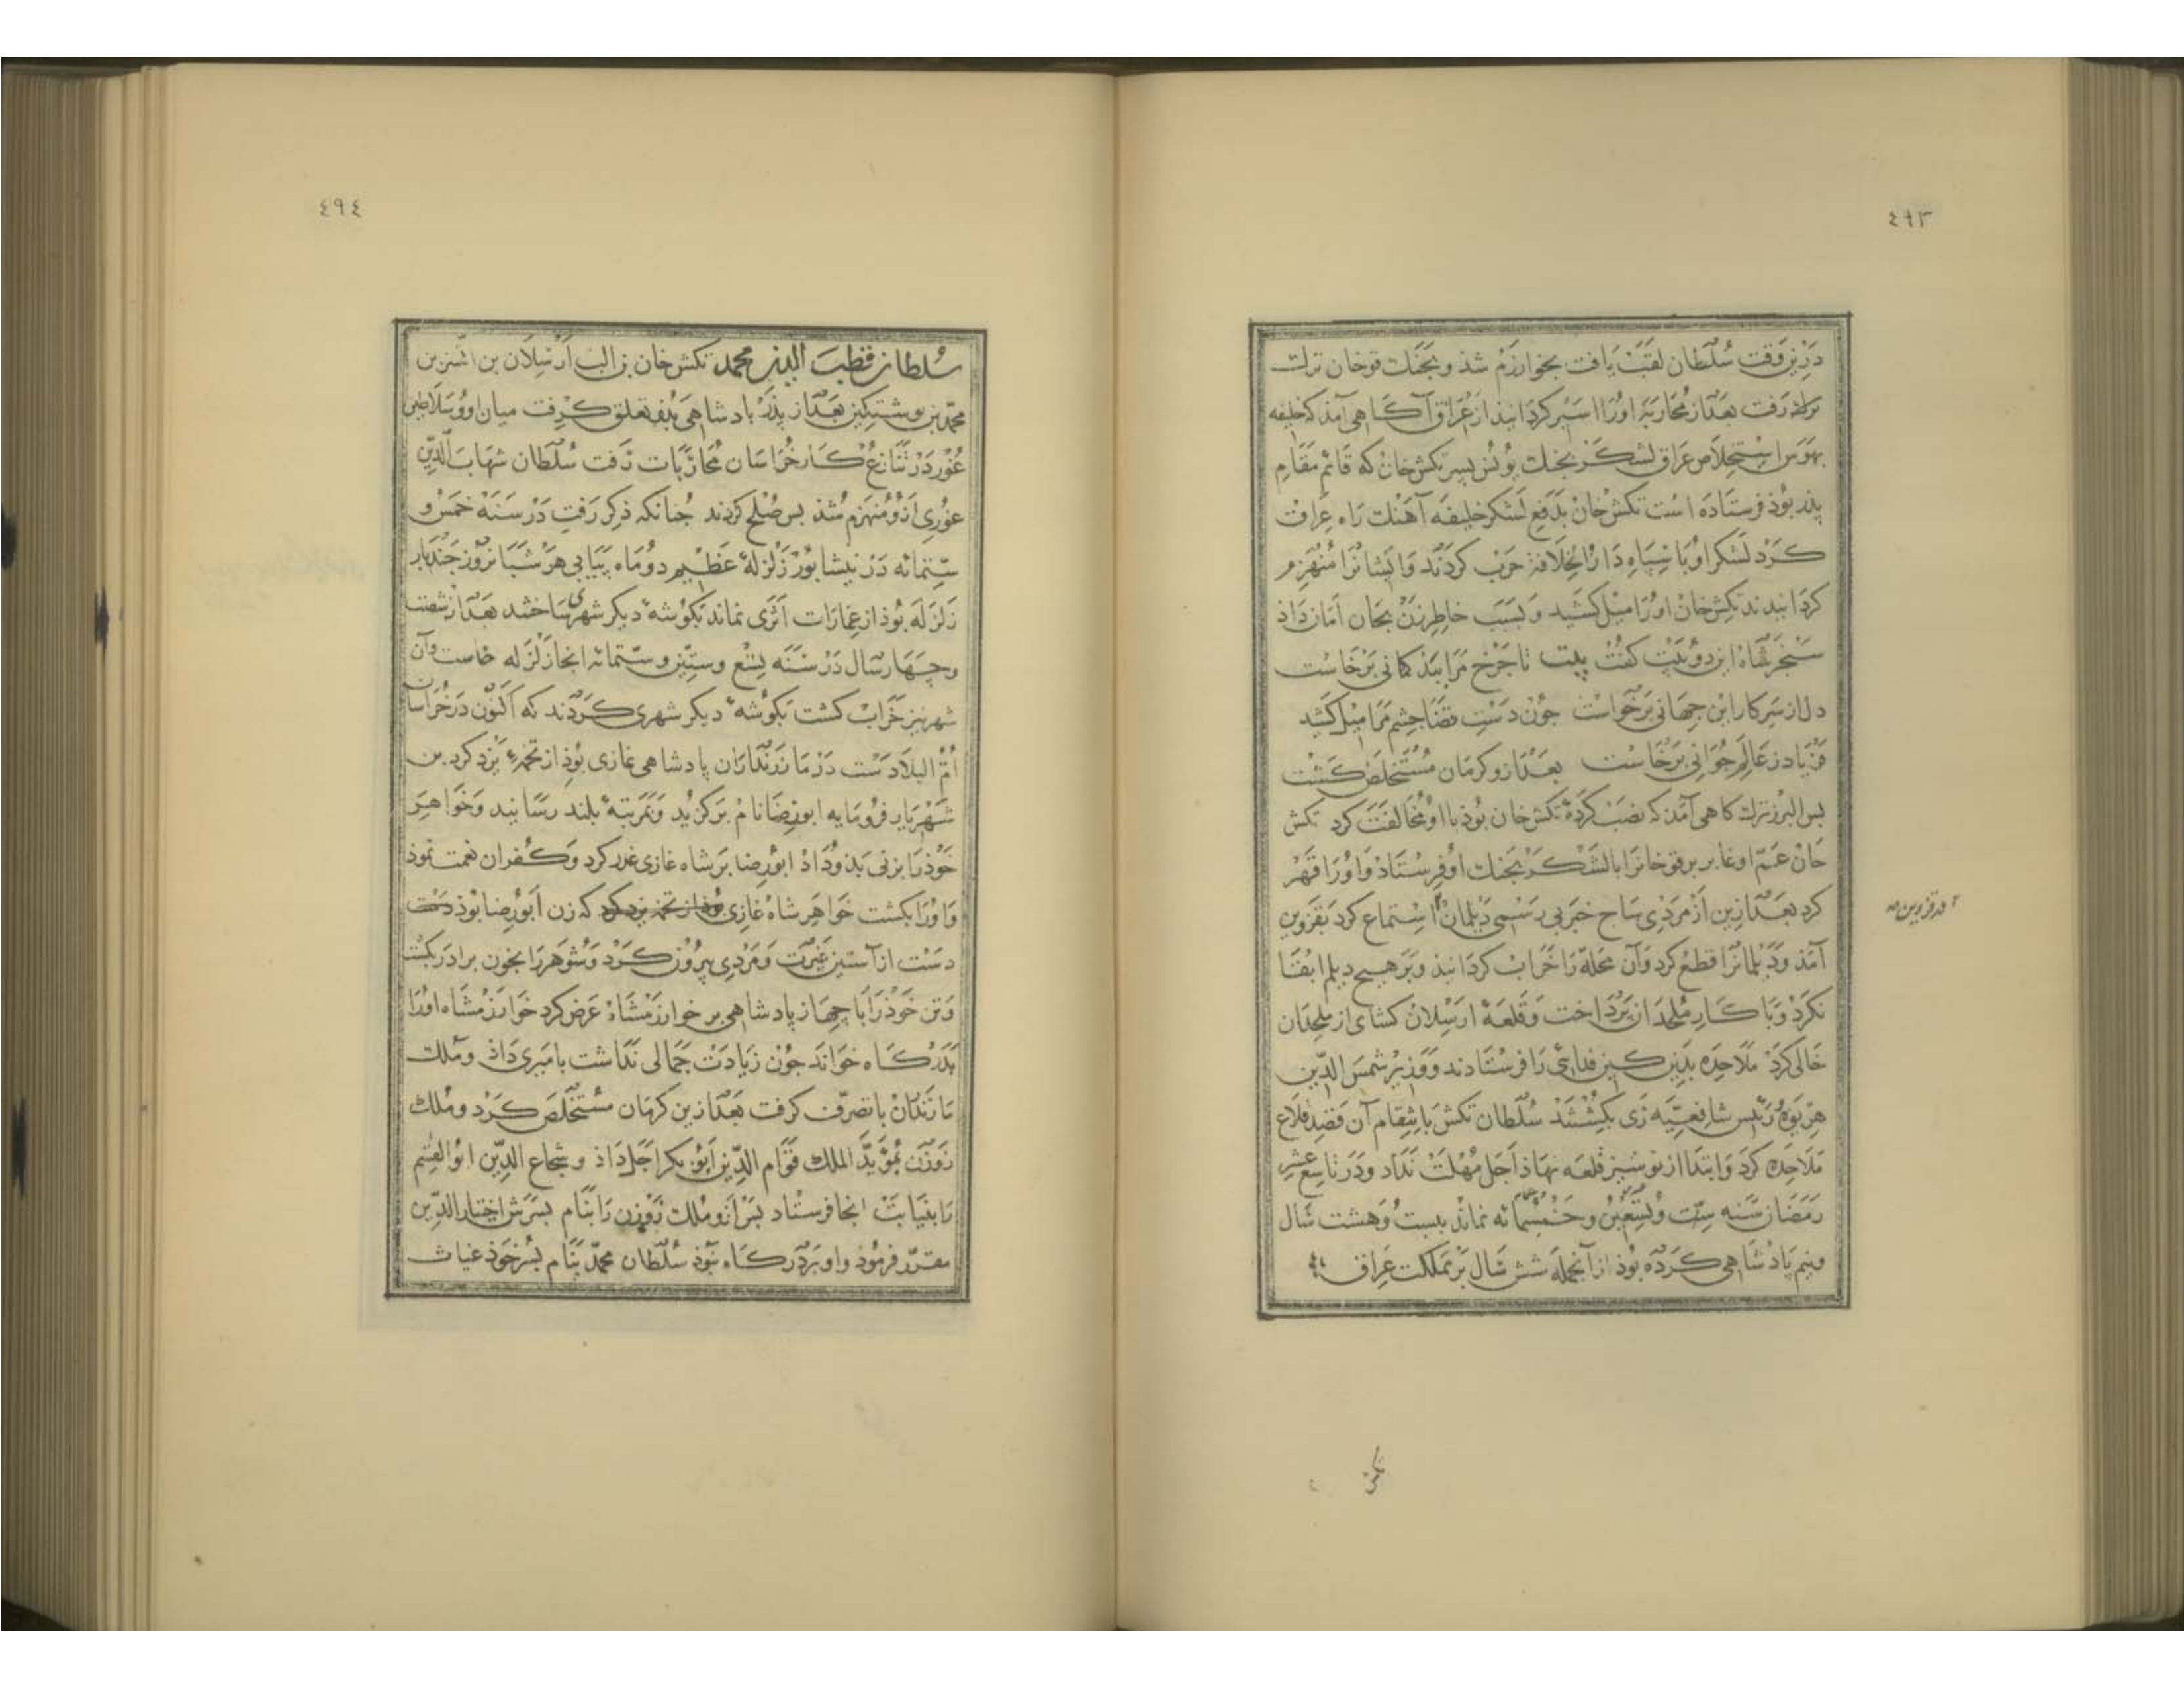 ٤٩٣
درین وقت سُلطان لقب یافت بخوارزم شذ و بجنك قوخان ترك
رفت بعد از محاربه او را اسیر کردانیذ از عراق آکاهی آمذ که خلیفه
بهوس استخلاص عراق لشکر بجنك یونس پسر تکش خان که قائم مقام
پذر بوذ فرستاده است تکش خان بدفع لشکر خلیفه آهنك راه عراق
کرد لشکر او با سپاه دار الخلافة حرب کردند و ایشانرا منهزم
کردانیدند تکش خان او را میل کشید و بسبب خاطر زن بجان امان داذ
سنجر شاه این دو بیت کفت بیت تا چرخ مرا بیذ کمانی برخاست
دل از سر کار این جهانی برخواست جون دست قضا چشم مرا میل کشید
فریاد ز عالم جوانی برخاست بعد ازو کرمان مستخلص کشت
بس البرز ترك کاهی آمذ که نصب کرده تکش خان بوذ با او مخالفت کرد تکش
خان عم او را با لشکر بجنك او فرستاد و او را قهر
کرد بعد ازین از مردی سیاح خبر بی رسمی دیلمان استماع کرد بقزوین
۲ در قزوین صح
آمذ و دیلمانرا قطع کرد و آن محله را خراب کردانیذ و بر هیچ دیلم ابقا
نکرد و با کار ملحدان پرداخت و قلعهٔ ارسلان کشای از ملحدان
خالی کرد ملاحده بدین کین فدایی را فرستادند و وزیر شمس الدین
هریوه رئیس شافعیه ری بکشتند سلطان تکش بانتقام آن قصد قلاع
ملاحده کرد و ابتدا از ترشیز قلعه نهاذ اجل مهلت نداد و در تاسع عشر
رمضان سنه ستّ و تسعین و خمسمائه نماند بیست و هشت سال
ونیم پادشاهی کرده بوذ از آنجمله شش سال بر مملکت عراق
تکش
٤٩٤
سُلطان قطب الدین محمد تکش خان بن الب ارسلان بن اتسز بن
محمّد بن نوشتکین بعد از پذر پادشاهی بدو تعلق کرفت میان او و سلاطین
غور در تنازع کار خراسان محاربات رفت سلطان شهاب الدین
غوری ازو منهزم شذ بس صلح کردند جنانکه ذکر رفت در سنه خمس و
ستمائه در نیشابور زلزلهٔ عظیم دو ماه پیاپی هر شبانروز جندبار
زلزله بوذ از عمارات اثری نماند بکوشهٔ دیکر شهری ساختند بعد از شصت
و چهار سال در سنه تسع و ستین و ستمائه انجا زلزله خاست و آن
شهر نیز خراب کشت بکوشهٔ دیکر شهری کردند که اکنون در خراسان
امّ البلاد ست در مازندران پادشاهی غازی بوذ از تخمهٔ یزد کرد بن
شهریار فرومایه ابو رضا نام برکزید و بمرتبهٔ بلند رسانید و خواهر
خوذ را بزنی بذو داذ ابو رضا بر شاه غازی غدر کرد و کفران نعمت نموذ
و او را بکشت خواهر شاه غازی بوذ از تخمهٔ یزد کرد که زن ابو رضا بوذ دست
دست از آستین غیرت و مردی بیرون کرد و شوهر را بخون برادر بکشت
و تن خوذ را با جهاز پادشاهی بر خوارزمشاه عرض کرد خوارزمشاه او را
بدرکاه خواند جون زیادت جمالی نداشت بامیری داذ و ملك
مازندران با تصرّف کرفت بعد ازین کرمان مستخلص کرد و ملك
زوزن بمؤیّد الملك قوام الدین ابو بکر اجل داذ و شجاع الدین ابو القسم
را بنیابت انجا فرستاد بس ازو ملك زوزن را بنام بسرش اختیار الدین
مقرّر فرموذ و او بر درکاه بوذ سلطان محمّد بنام بسر خوذ غیاث